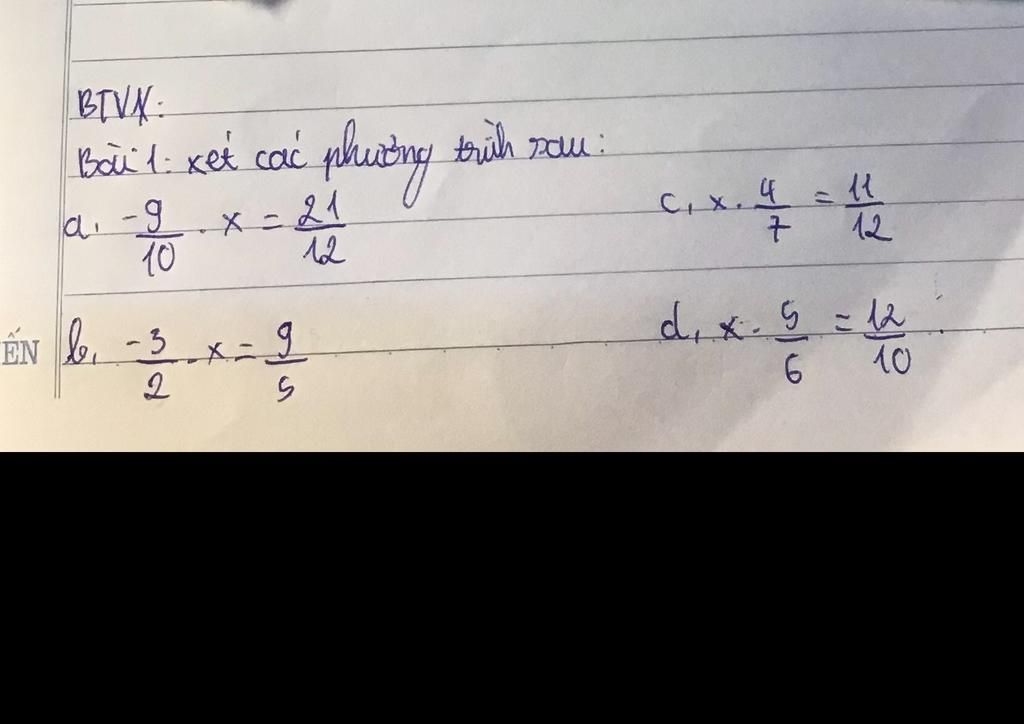 BTVN:
Bài 1: xét các phương trình sau:
a, -9/10 . x = 21/12
c, x . 4/7 = 11/12
ẾN
b, -3/2 . x = 9/5
d, x . 5/6 = 12/10